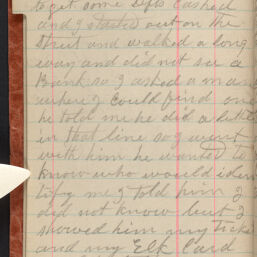 to get some gifts cashed
and I started out on the
street and walked a long
way and did not see a
Bank so I asked a man
where I could find one
he told me he did a little
in that line so I went
with him he wanted to
know who would iden
tify me I told him I
did not know but I
showed him my Ticket
and my Elk Card